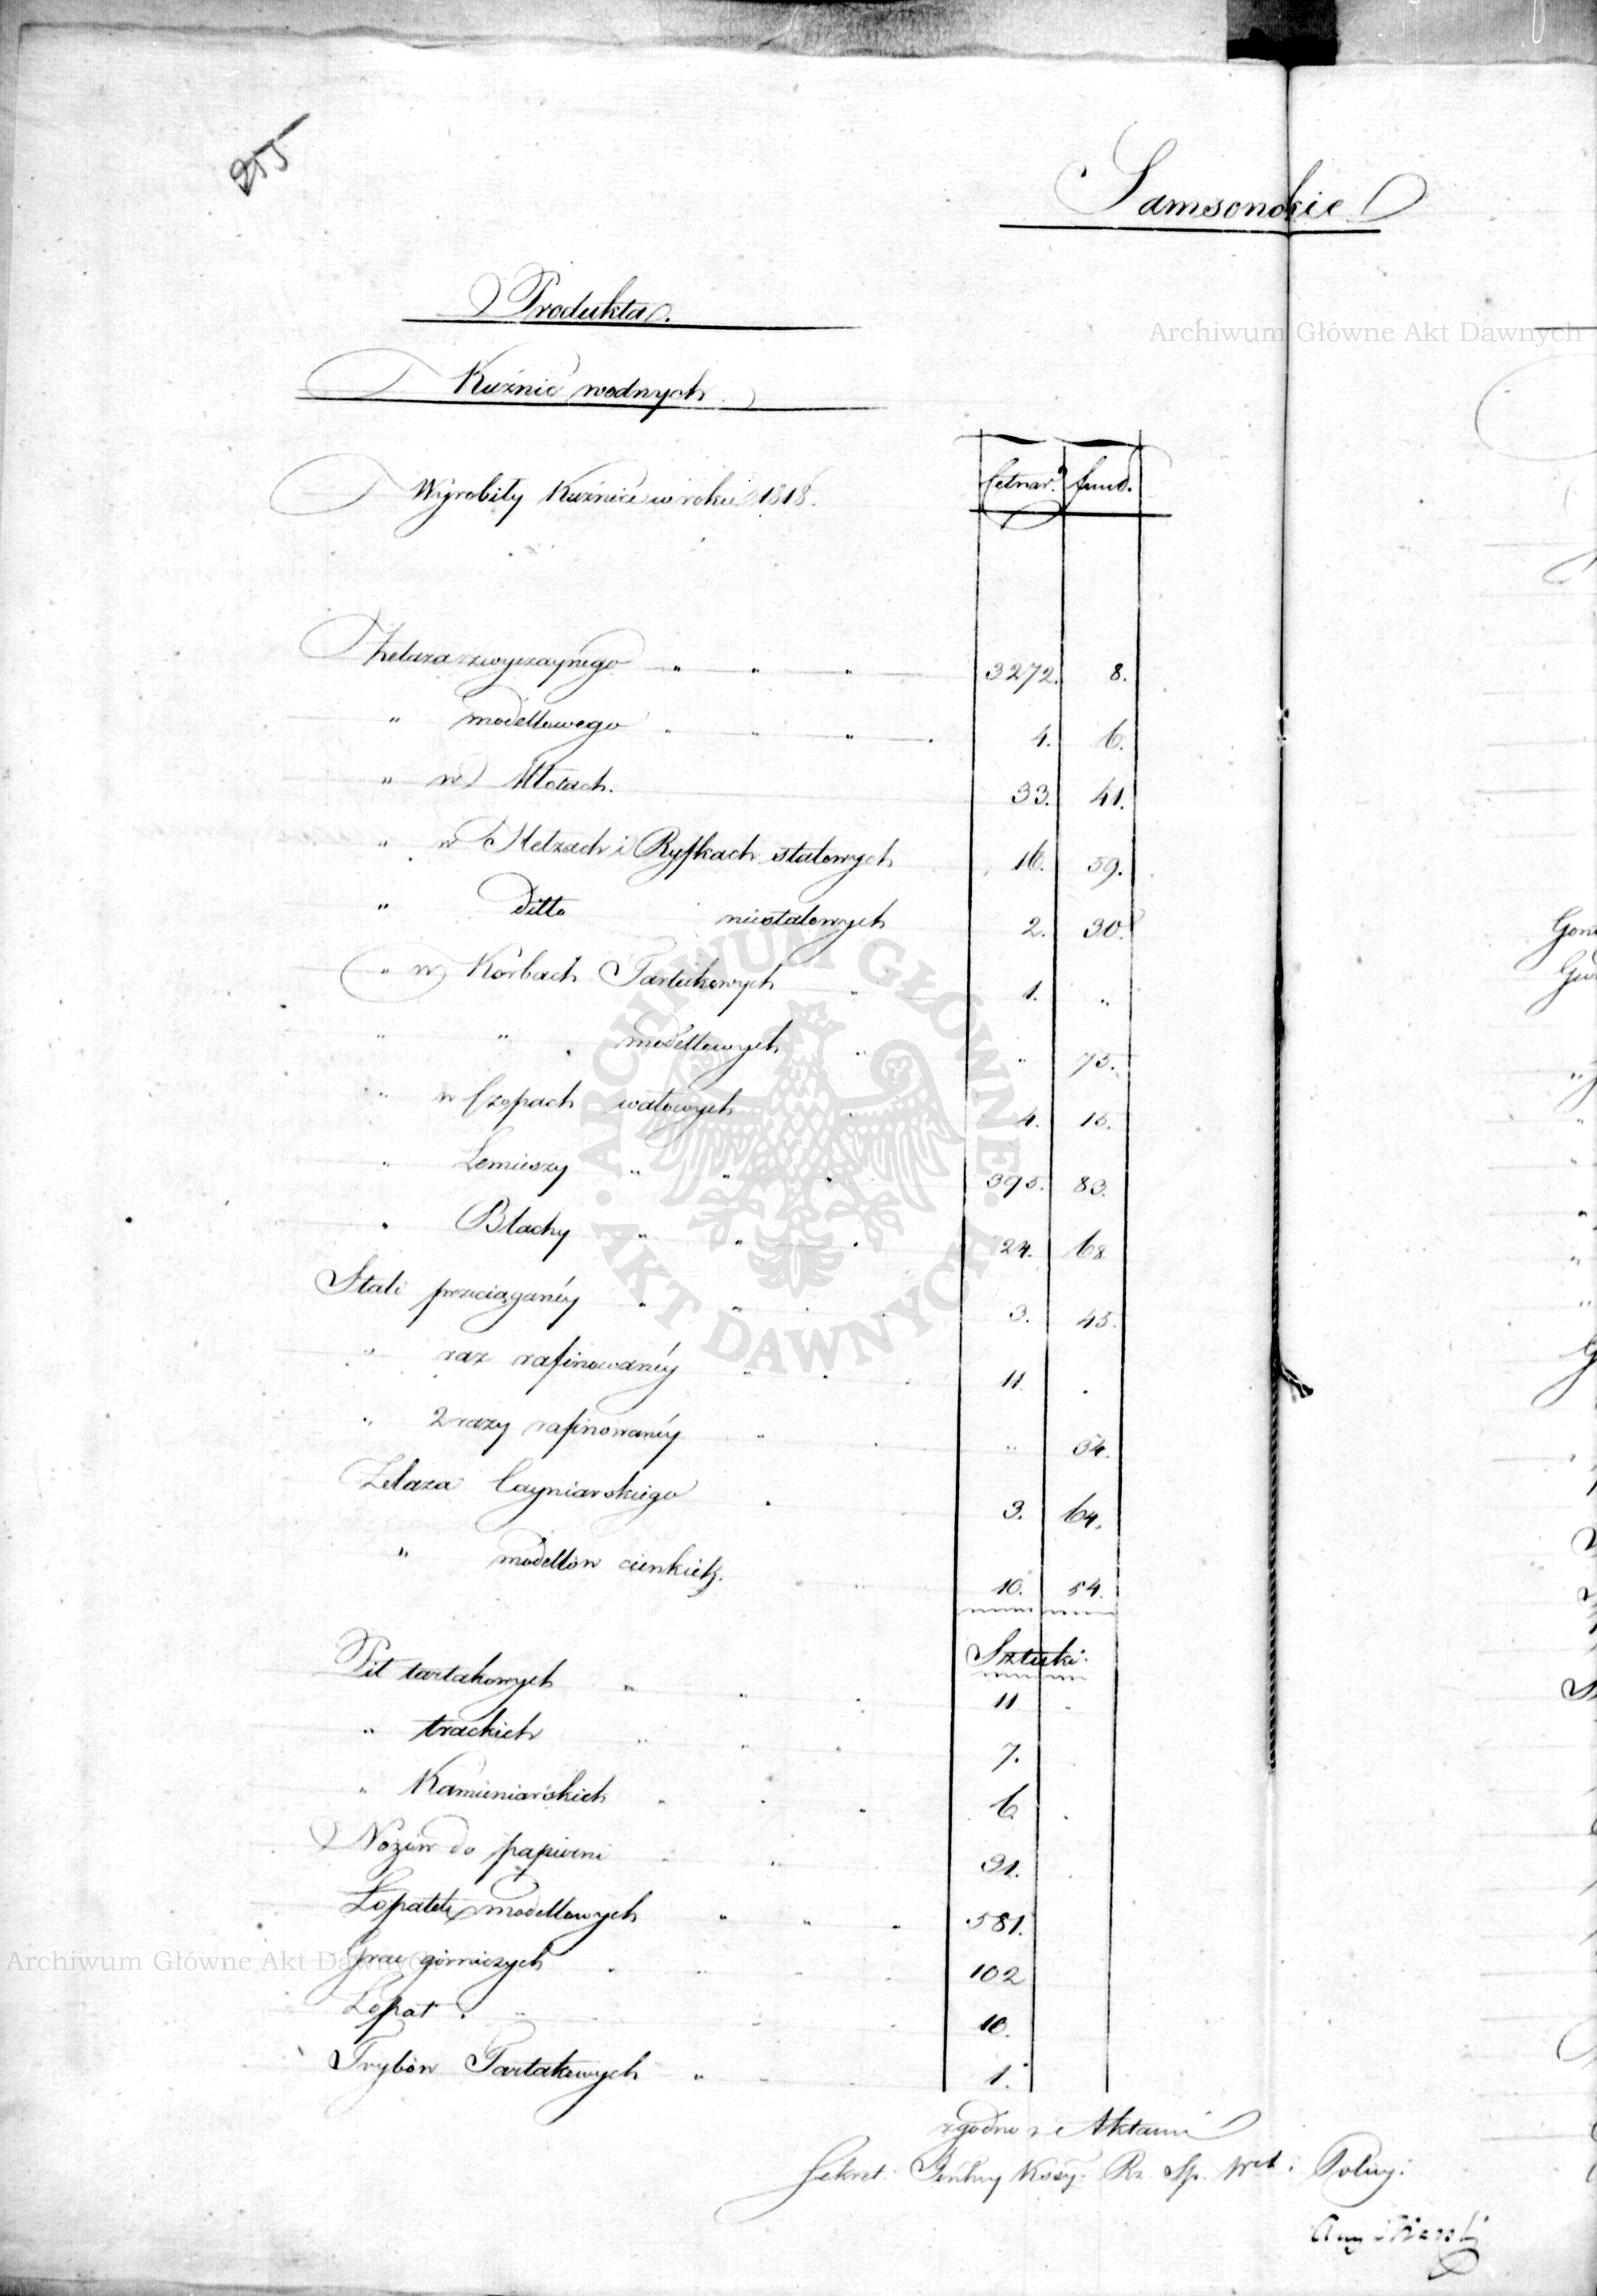 255
Samsonskie
Produkta.
Kuźnic wodnych
Wyrobiły Kuźnice w roku 1818.
Cetnar. funt.
Żelaza zwyczaynego " " " 3272. 8.
" modellowego " " " 4. 6.
" w Młotach. 33. 41.
" w Helzach i Ryfkach stalowych 16. 59.
" Ditto niestalowych 2. 30.
" w Korbach Tartakowych " 1. "
" " modellowych " " 75.
" w Czopach wałowych " 4. 15.
" Lemieszy " " " 395. 83.
" Blachy " " " 24. 68
Stali przeciąganéy " " 3. 45.
" raz rafinowanéy " 11. "
" 2 razy rafinowanéy " " 54.
Żelaza Cayniarskiego 3. 64.
" modellów cienkich. 10. 54.
Sztuki.
Pił tartakowych " " 11
" trackich " " 7.
" Kamieniarskich " " 6
Nożów do papierni " " 31.
Łopatek modellowych " " " 581.
Grac górniczych " " 102
Łopat " 10.
Trybów Tartakowych " 1.
zgodno z Aktami
Sekret. Jeńlny Kssyi Rz. Sp. Wet. i Policyi
Archiwum Główne Akt Dawnych
Archiwum Główne Akt Dawnych
ARCHIWUM GŁÓWNE AKT DAWNYCH